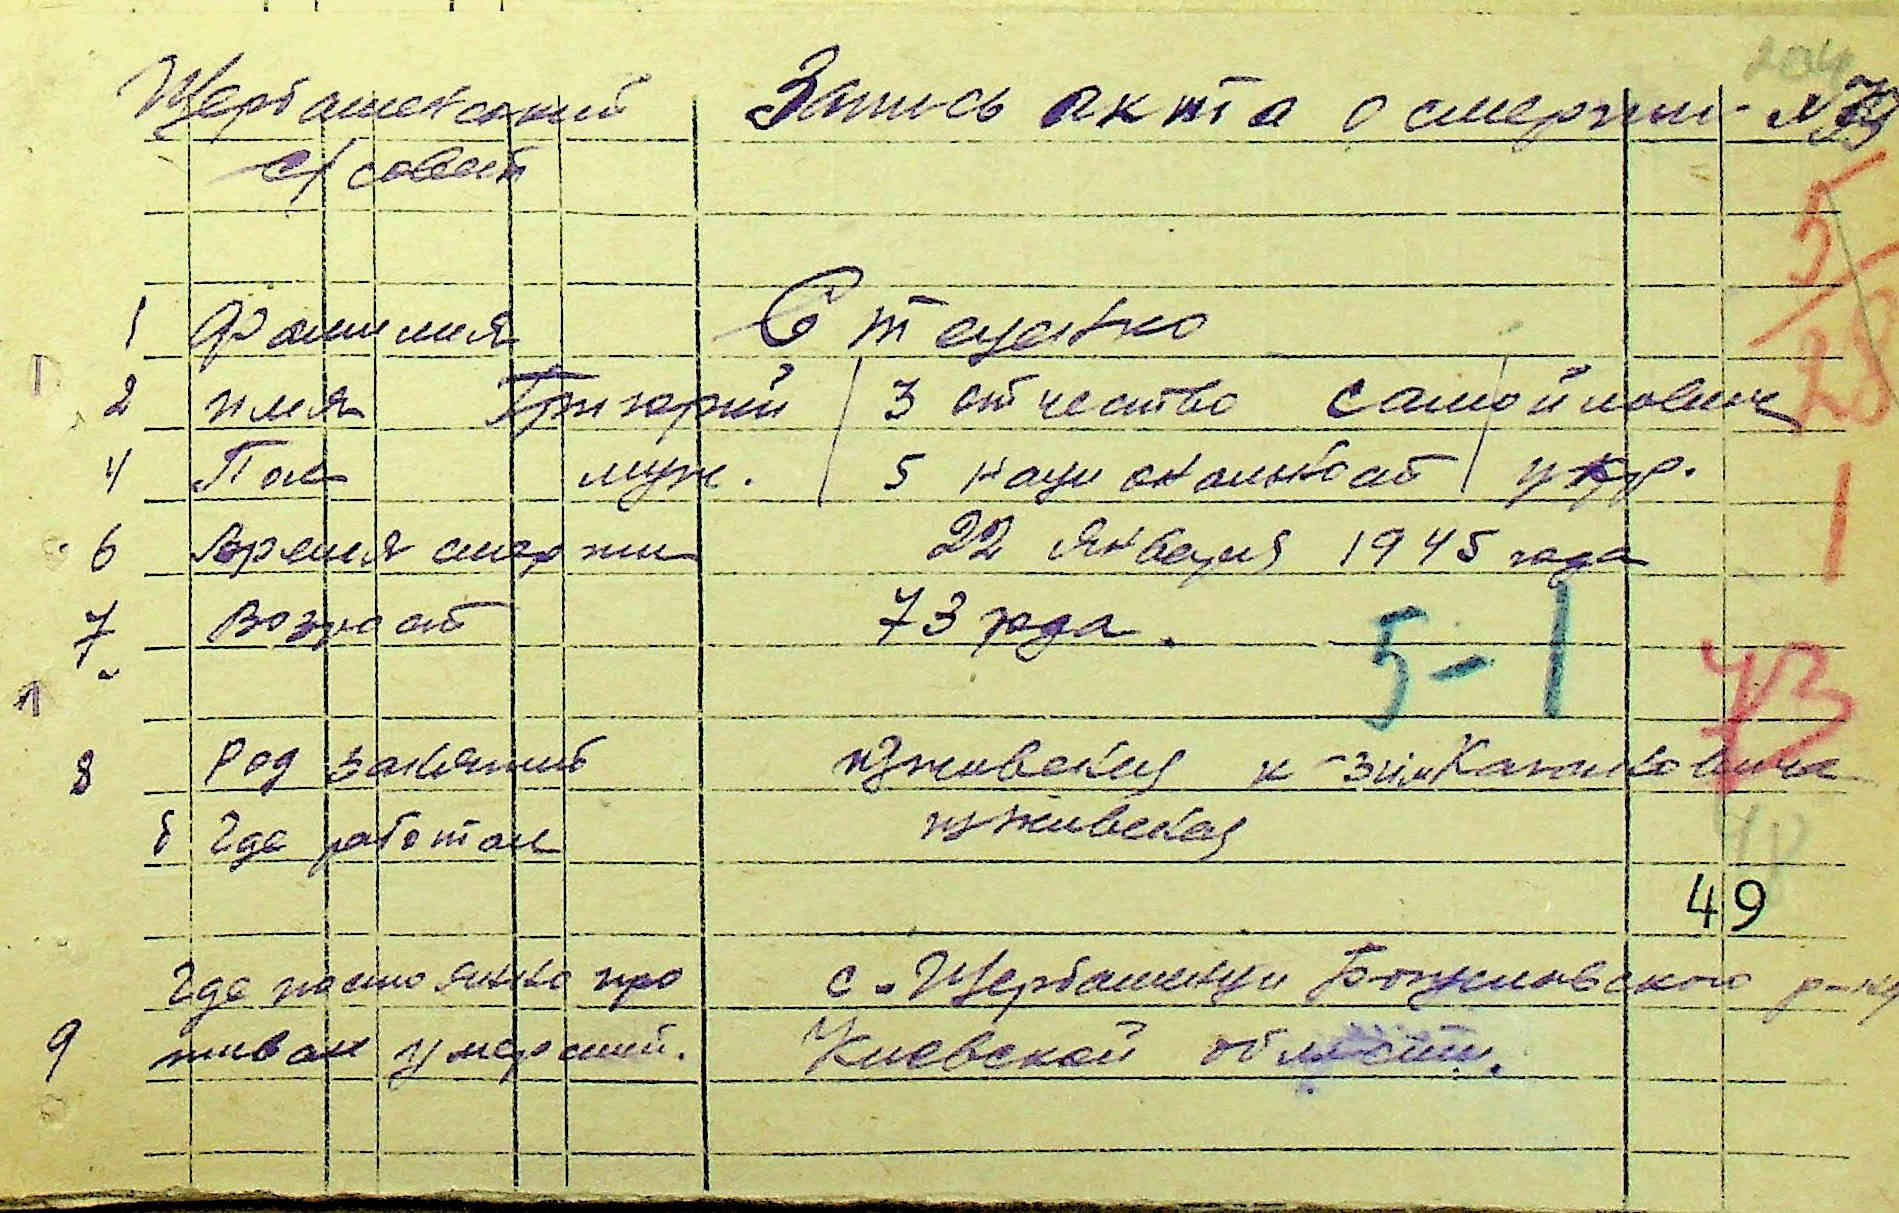 204
Щербашенский Запись акта о смерти №
с/совет
5/28
1 Фамилия Стаценко
2 имя Григорий 3 отчество Самойлович
4 Пол муж. 5 национальност укр.
1
6 Время смерти 22 января 1945 года
7 Возраст 73 года.
5-1
73
8 Род занятий иждивения к-з им
б Где работал иждивения
49
Где постоянно про с. Щербашенци Богуславского р-на
9 живал умерший. Киевской области.